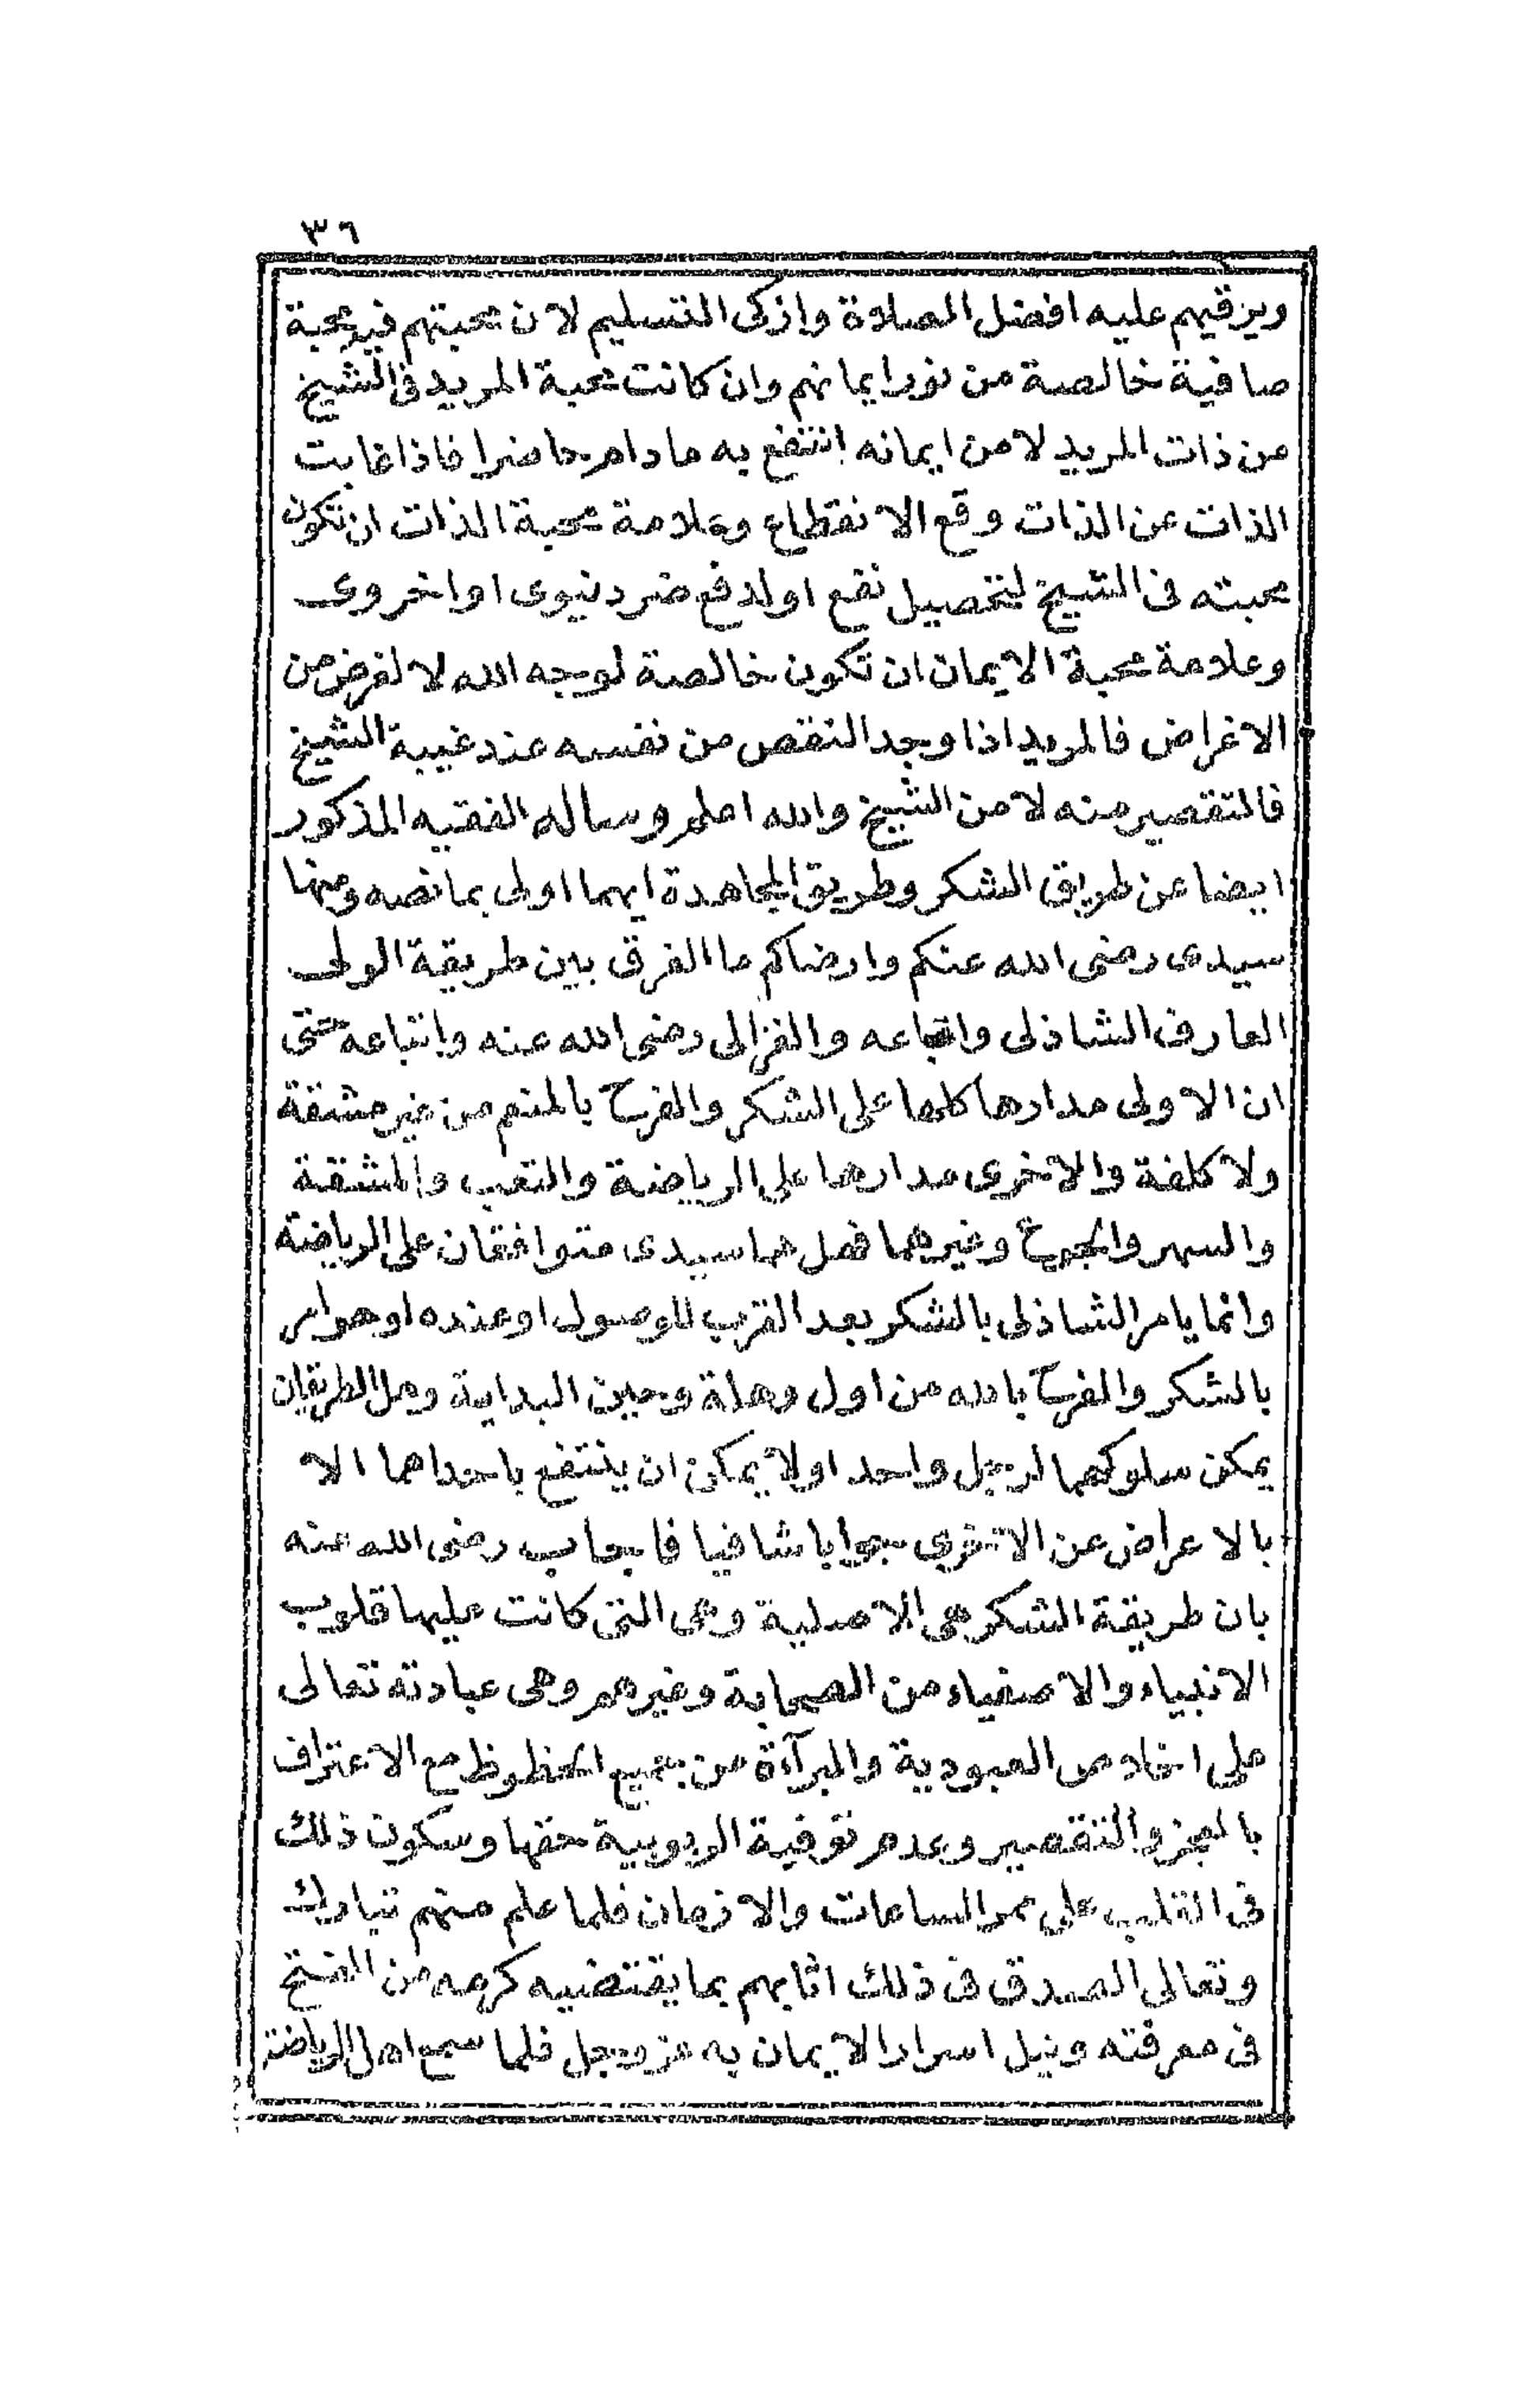 ٣٦
ويرقيهم عليه افضل الصلاة وازكى التسليم لان محبتهم فيه محبة
صافية خالصة من نور ايمانهم وان كانت محبة المريد فى الشيخ
من ذات المريد لا من ايمانه انتفع به مادام حاضرا فاذا غابت
الذات عن الذات وقع الانقطاع وعلامة محبة الذات ان تكون
محبته فى الشيخ لتحصيل نفع او لدفع ضر دنيوى او اخروى
وعلامة محبة الايمان ان تكون خالصة لوجه الله لا لغرض من
الاغراض فالمريد اذا وجد النقص من نفسه عند غيبة الشيخ
فالتقصير منه لا من الشيخ والله اعلم وساله الفقيه المذكور
ايضا عن طريق الشكر وطريق المجاهدة ايهما اولى بما نصه ومنها
سيدى رضى الله عنكم وارضاكم ما الفرق بين طريقة الولى
العارف الشاذلى واتباعه والغزالى رضى الله عنه واتباعه حتى
ان الاولى مدارها كلها على الشكر والفرح بالمنعم من غير مشقة
ولا كلفة والاخرى مدارها على الرياضة والتعب والمشقة
والسهر والجوع وغيرهما فهل هما سيدى متوافقان على الرياضة
وانما يامر الشاذلى بالشكر بعد القرب للوصول او عنده او هو امر
بالشكر والفرح بالله من اول وهلة وحين البداية وهل الطريقان
يمكن سلوكهما لرجل واحد او لا يمكن ان ينتفع باحداهما الا
بالاعراض عن الاخرى جوابا شافيا فاجاب رضى الله عنه
بان طريقة الشكر هى الاصلية وهى التى كانت عليها قلوب
الانبياء والاصفياء من الصحابة وغيرهم وهى عبادته تعالى
على اخلاص العبودية والبرآءة من جميع الحظوظ مع الاعتراف
بالعجز والتقصير وعدم توفية الربوبية حقها وسكون ذلك
فى القلب على ممر الساعات والازمان فلما علم منهم تبارك
وتعالى الصدق فى ذلك اثابهم بما يقتضيه كرمه من الفتح
فى معرفته ونيل اسرار الايمان به عز وجل فلما سمع اهل الرياضة